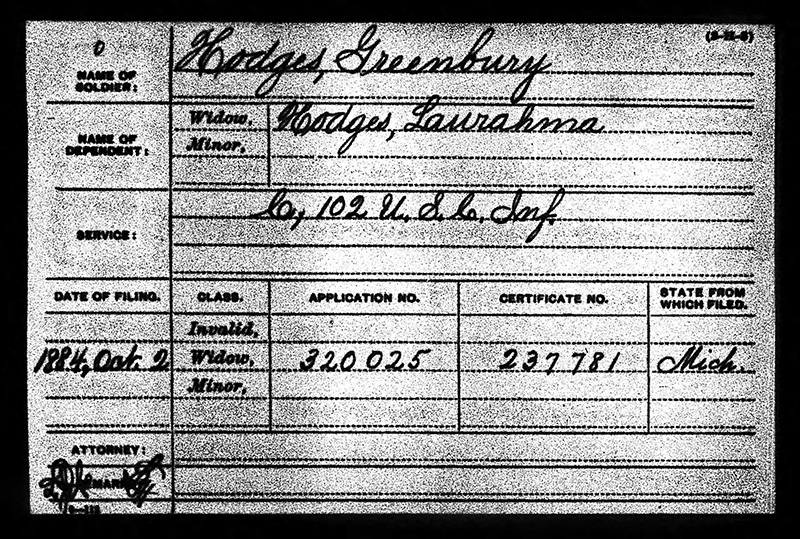 (3-11-6)
O
NAME OF SOLDIER: Hodges, Greenbury
NAME OF DEPENDENT: Widow, Hodges, Laurahma
Minor,
SERVICE: C, 102 U. S. C. Inf.
DATE OF FILING. CLASS. APPLICATION NO. CERTIFICATE NO. STATE FROM WHICH FILED.
Invalid,
1884, Oct. 2 Widow, 320025 237781 Mich.
Minor,
ATTORNEY: